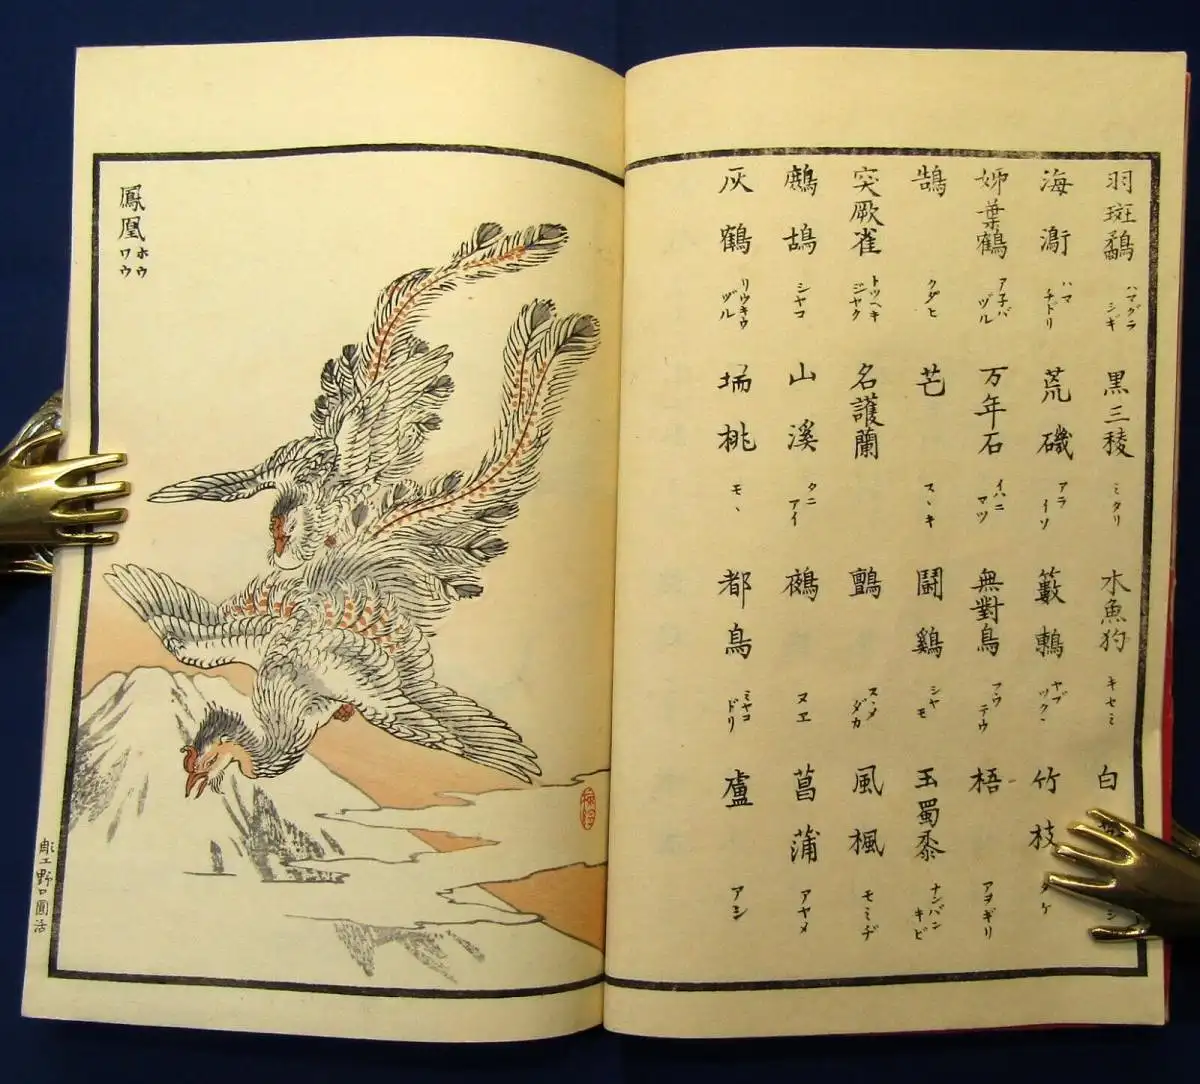 羽斑鷸 ハマダラシギ 黒三稜 ミタリ 水魚狗 キセミ 白
海鵆 ハマチドリ 荒磯 アライソ 籔 ヤブツク 竹枝 タケ
姉葉鶴 ア子バヅル 万年石 イハニマツ 無對鳥 フウテウ 梧 アヲギリ
鵠 クヾヒ 芒 スヽキ 鬪鷄 シヤモ 玉蜀黍 ナンバンキビ
突厥雀 トツヘキジヤク 名護蘭 鸇 スヽメダカ 風楓 モミヂ
鷓鴣 シヤコ 山溪 タニアイ 鵺 ヌエ 菖蒲 アヤメ
灰鶴 リウキウヅル 桃 モヽ 都鳥 ミヤコドリ 蘆 アシ
鳳凰 ホウワウ
彫工野口圓活